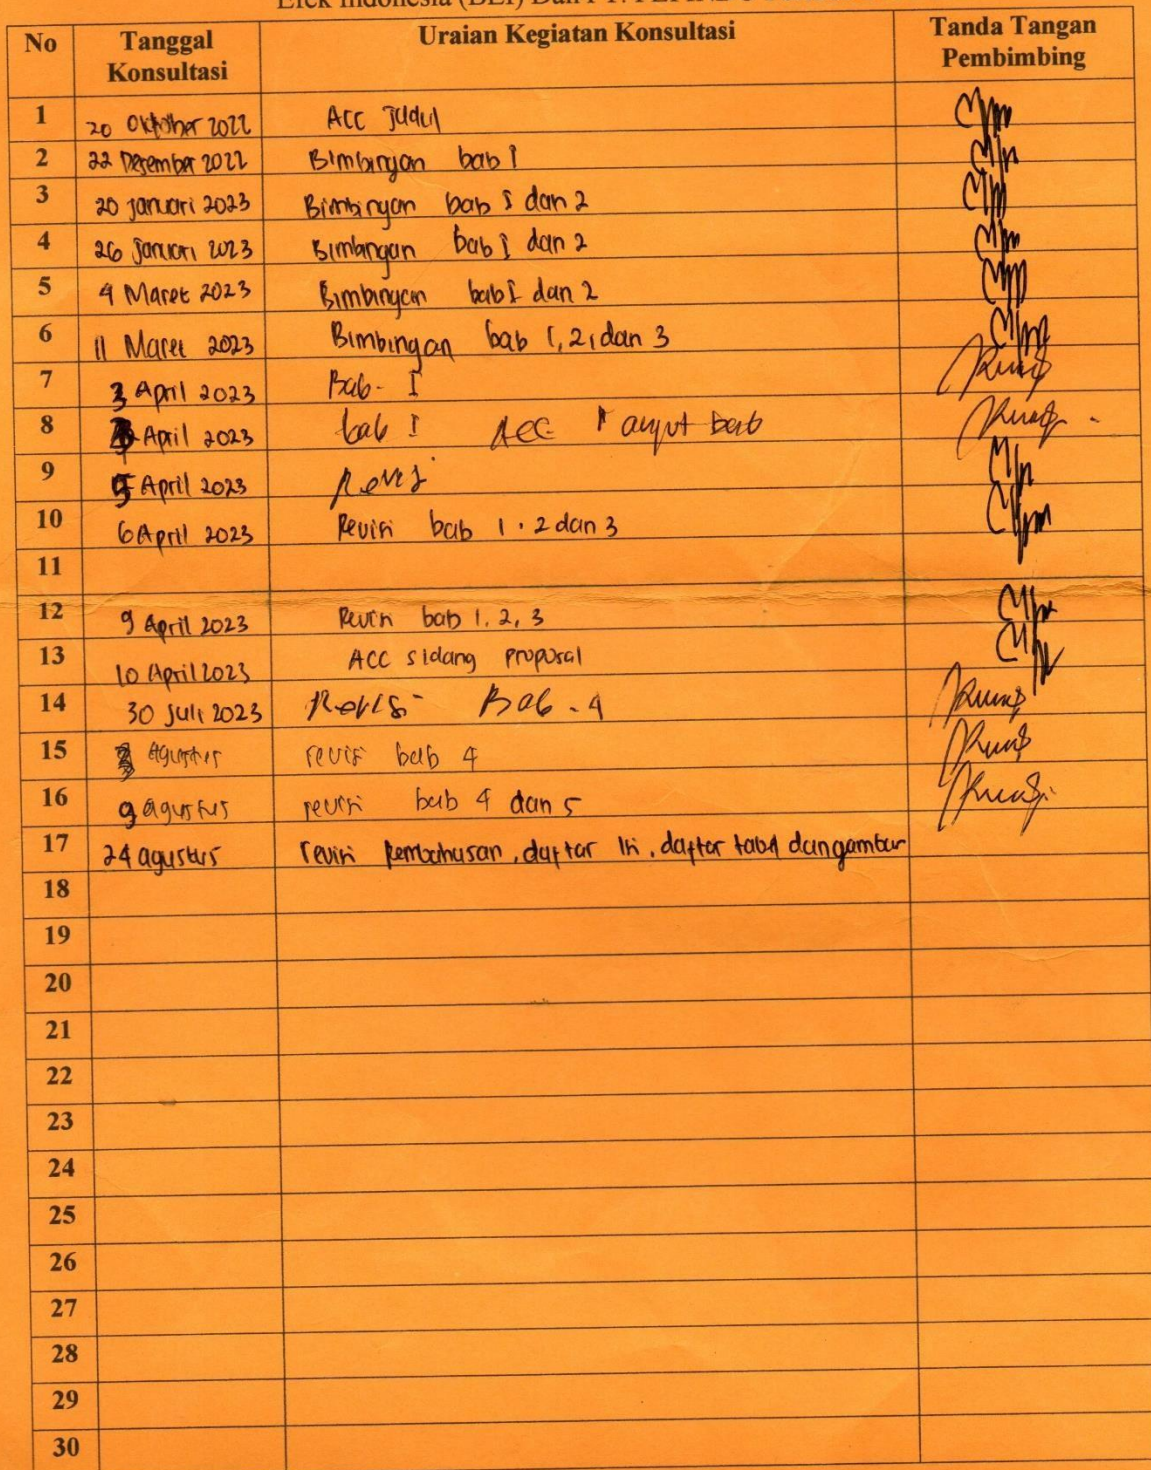 Efek Indonesia (BEI) Dan PT.
No Tanggal Konsultasi Uraian Kegiatan Konsultasi Tanda Tangan Pembimbing
1 20 Oktober 2022 ACC Judul
2 22 Desember 2022 Bimbingan bab I
3 20 Januari 2023 Bimbingan bab I dan 2
4 26 Januari 2023 Bimbingan bab I dan 2
5 4 Maret 2023 Bimbingan bab I dan 2
6 11 Maret 2023 Bimbingan bab 1, 2, dan 3
7 3 April 2023 Bab - I
8 April 2023 bab I ACC bab
9 5 April 2023 Revisi
10 6 April 2023 Revisi bab 1, 2 dan 3
11
12 9 April 2023 Revisi bab 1, 2, 3
13 10 April 2023 ACC sidang proposal
14 30 Juli 2023 Revisi - Bab - 4
15 Agustus revisi bab 4
16 9 agustus revisi bab 4 dan 5
17 24 agustus revisi pembahasan, daftar isi, daftar tabel dan gambar
18
19
20
21
22
23
24
25
26
27
28
29
30